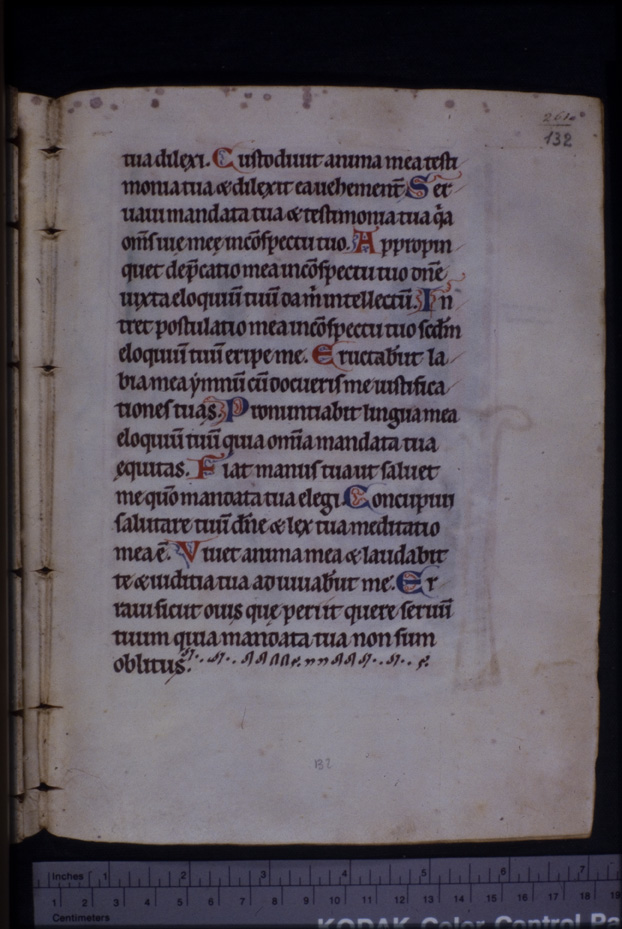 261
132
tua dilexi. Custodiuit anima mea testi
monia tua & dilexit ea uehement̄ Ser
uaui mandata tua & testimonia tua q̄a
om̄s uie mee in cōspectu tuo. Appropin
quet dep̄catio mea in cōspectu tuo dn̄e
iuxta eloquiū tuū da m̄ intellectū. In
tret postulatio mea in cōspectu tuo scd̄m
eloquiū tuū eripe me. Eructab̄ut la
bia mea ẏmnū cū docueris me iustifica
tiones tuas. Pronuntiabit lingua mea
eloquiū tuū quia om̄ia mandata tua
equitas. Fiat manus tua ut saluet
me quō mandata tua elegi. Concupiui
salutare tuū dn̄e & lex tua meditatio
mea ē. Viuet anima mea & laudabit
te & iuditia tua adiuuab̄ut me. Er
raui sicut ouis que periit quere seruū
tuum quia mandata tua non sum
oblitus.
132
Inches 1 2 3 4 5 6 7
1 2 3 4 5 6 7 8 9 10 11 12 13 14 15 16 17 18 19
Centimeters
KODAK Color Control Pa